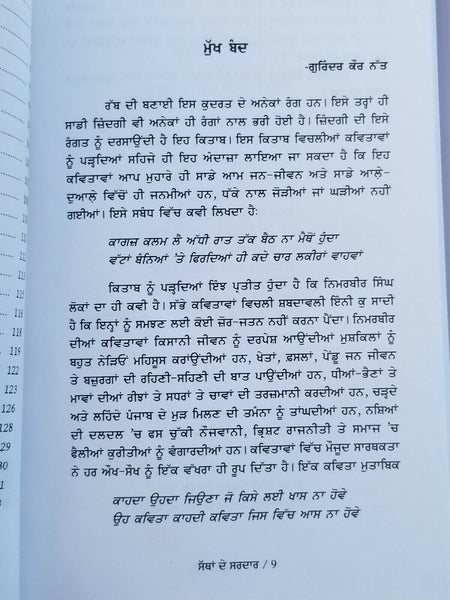 ਮੁੱਖ ਬੰਦ
-ਗੁਰਿੰਦਰ ਕੌਰ ਨੱਤ
ਰੱਬ ਦੀ ਬਣਾਈ ਇਸ ਕੁਦਰਤ ਦੇ ਅਨੇਕਾਂ ਰੰਗ ਹਨ। ਇਸੇ ਤਰ੍ਹਾਂ ਹੀ
ਸਾਡੀ ਜ਼ਿੰਦਗੀ ਵੀ ਅਨੇਕਾਂ ਹੀ ਰੰਗਾਂ ਨਾਲ ਭਰੀ ਹੋਈ ਹੈ। ਜ਼ਿੰਦਗੀ ਦੀ ਇਸੇ
ਰੰਗਤ ਨੂੰ ਦਰਸਾਉਂਦੀ ਹੈ ਇਹ ਕਿਤਾਬ। ਇਸ ਕਿਤਾਬ ਵਿਚਲੀਆਂ ਕਵਿਤਾਵਾਂ
ਨੂੰ ਪੜ੍ਹਦਿਆਂ ਸਹਿਜੇ ਹੀ ਇਹ ਅੰਦਾਜ਼ਾ ਲਾਇਆ ਜਾ ਸਕਦਾ ਹੈ ਕਿ ਇਹ
ਕਵਿਤਾਵਾਂ ਆਪ ਮੁਹਾਰੇ ਹੀ ਸਾਡੇ ਆਮ ਜਨ-ਜੀਵਨ ਅਤੇ ਸਾਡੇ ਆਲੇ-
ਦੁਆਲੇ ਵਿੱਚੋਂ ਹੀ ਜਨਮੀਆਂ ਹਨ, ਧੱਕੇ ਨਾਲ ਜੋੜੀਆਂ ਜਾਂ ਘੜੀਆਂ ਨਹੀਂ
ਗਈਆਂ। ਇਸੇ ਸਬੰਧ ਵਿੱਚ ਕਵੀ ਲਿਖਦਾ ਹੈ:
ਕਾਗਜ਼ ਕਲਮ ਲੈ ਅੱਧੀ ਰਾਤ ਤੱਕ ਬੈਠ ਨਾ ਮੈਥੋਂ ਹੁੰਦਾ
ਵੱਟਾਂ ਬੰਨਿਆਂ 'ਤੇ ਫਿਰਦਿਆਂ ਹੀ ਕਦੇ ਚਾਰ ਲਕੀਰਾਂ ਵਾਹਵਾਂ
ਕਿਤਾਬ ਨੂੰ ਪੜ੍ਹਦਿਆਂ ਇੰਝ ਪ੍ਰਤੀਤ ਹੁੰਦਾ ਹੈ ਕਿ ਨਿਮਰਬੀਰ ਸਿੰਘ
ਲੋਕਾਂ ਦਾ ਹੀ ਕਵੀ ਹੈ। ਸੱਭੇ ਕਵਿਤਾਵਾਂ ਵਿਚਲੀ ਸ਼ਬਦਾਵਲੀ ਇੰਨੀ ਕੁ ਸਾਦੀ
ਹੈ ਕਿ ਇਨ੍ਹਾਂ ਨੂੰ ਸਮਝਣ ਲਈ ਕੋਈ ਜ਼ੋਰ-ਜਤਨ ਨਹੀਂ ਕਰਨਾ ਪੈਂਦਾ। ਨਿਮਰਬੀਰ
ਦੀਆਂ ਕਵਿਤਾਵਾਂ ਕਿਸਾਨੀ ਜੀਵਨ ਨੂੰ ਦਰਪੇਸ਼ ਆਉਂਦੀਆਂ ਮੁਸ਼ਕਿਲਾਂ ਨੂੰ
ਬਹੁਤ ਨੇੜਿਓਂ ਮਹਿਸੂਸ ਕਰਾਉਂਦੀਆਂ ਹਨ, ਖੇਤਾਂ, ਫ਼ਸਲਾਂ, ਪੇਂਡੂ ਜਨ ਜੀਵਨ
ਤੇ ਬਜ਼ੁਰਗਾਂ ਦੀ ਰਹਿਣੀ-ਸਹਿਣੀ ਦੀ ਬਾਤ ਪਾਉਂਦੀਆਂ ਹਨ, ਧੀਆਂ-ਭੈਣਾਂ ਤੇ
ਮਾਵਾਂ ਦੀਆਂ ਰੀਝਾਂ ਤੇ ਸਧਰਾਂ ਤੇ ਚਾਵਾਂ ਦੀ ਤਰਜ਼ਮਾਨੀ ਕਰਦੀਆਂ ਹਨ, ਚੜ੍ਹਦੇ
ਅਤੇ ਲਹਿੰਦੇ ਪੰਜਾਬ ਦੇ ਮੁੜ ਮਿਲਣ ਦੀ ਤਮੰਨਾ ਨੂੰ ਤਾਂਘਦੀਆਂ ਹਨ, ਨਸ਼ਿਆਂ
ਦੀ ਦਲਦਲ 'ਚ ਫਸ ਚੁੱਕੀ ਨੌਜਵਾਨੀ, ਭ੍ਰਿਸ਼ਟ ਰਾਜਨੀਤੀ ਤੇ ਸਮਾਜ 'ਚ
ਫੈਲੀਆਂ ਕੁਰੀਤੀਆਂ ਨੂੰ ਵੰਗਾਰਦੀਆਂ ਹਨ। ਕਵਿਤਾਵਾਂ ਵਿੱਚ ਮੌਜੂਦ ਸਾਰਥਕਤਾ
ਨੇ ਹਰ ਔਖ-ਸੌਖ ਨੂੰ ਇੱਕ ਵੱਖਰਾ ਹੀ ਰੂਪ ਦਿੱਤਾ ਹੈ। ਇੱਕ ਕਵਿਤਾ ਮੁਤਾਬਿਕ
ਕਾਹਦਾ ਉਹਦਾ ਜਿਉਣਾ ਜੋ ਕਿਸੇ ਲਈ ਖਾਸ ਨਾ ਹੋਵੇ
ਉਹ ਕਵਿਤਾ ਕਾਹਦੀ ਕਵਿਤਾ ਜਿਸ ਵਿੱਚ ਆਸ ਨਾ ਹੋਵੇ
ਸੱਥਾਂ ਦੇ ਸਰਦਾਰ / 9
115
116
117
118
119
120
121
122
123
126
128
129